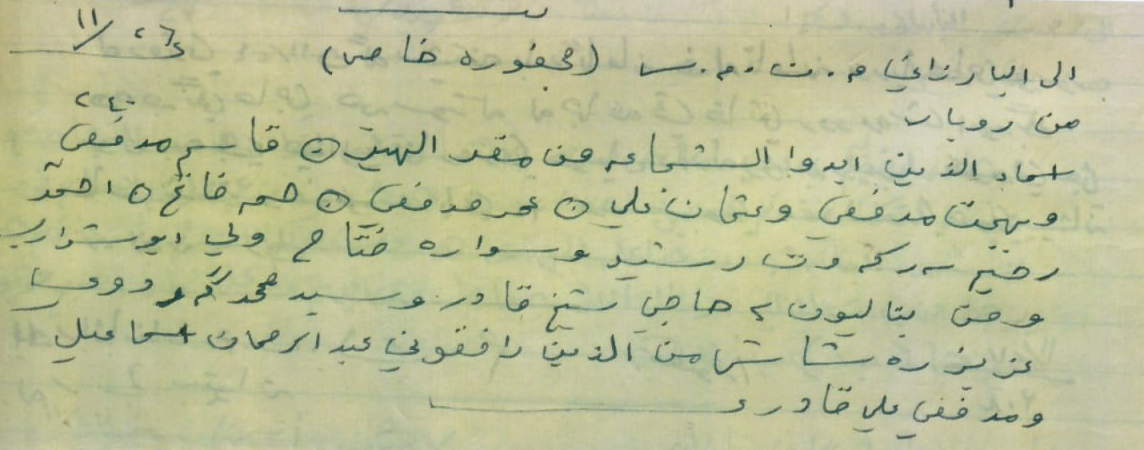 ١١/٢٦
الى البارزاني م.ت.م.س (محفوره خاص)
من روبار
٢٤٠
اسماء الذين ابدوا الشجاعه من مقر الهيز ⊙ قاسم مدفعى
وبهجت مدفعي وعثمان علي ⊙ عمر مدفعي ⊙ حمه فاتح ⊙ احمد
رضيم سركه وت رشيد وسواره فتاح ولي ابو ستراب
ومن بتاليون ٤ حاجي شيخ قادر وسيد محمد
عزيز ره شاش من الذين رافقوني عبد الرحمان اسماعيل
ومدفعي علي قادر